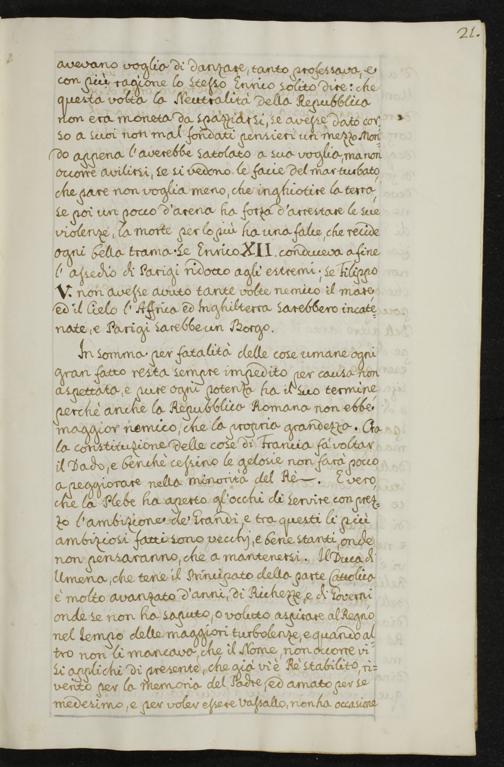 21.
avevano voglia di danzare, tanto professava, e
con più ragione lo stesso Enrico solito dire: che
questa volta la Neutralità della Repubblica
non era moneta da spaziarsi, se avesse dato cor=
so a suoi non mal fondati pensieri un mezzo Mon=
do appena l'averebbe satolato a sua voglia, ma non
occorre avilirsi, se si vedono le facie del mar turbato,
che pare non voglia meno, che inghiotire la terra,
se poi un pocco d'arena ha forza d'arrestare le sue
violenze, la morte per lo più ha una falce, che recide
ogni bella trama. Se Enrico XII. conduceva a fine
l'assedio di Parigi ridotto agli estremi; se Filippo
V. non avesse avuto tante volte nemico il mare,
ed il Cielo l'Affrica ed Inghilterra sarebbero incate=
nate, e Parigi sarebbe un Borgo.
In somma per fatalità delle cose umane ogni
gran fatto resta sempre impedito per causa non
aspettata, e pure ogni potenza ha il suo termine
perchè anche la Repubblica Romana non ebbe
maggior nemico, che la propria grandezza. Ora
la constituzione delle cose di Francia fà voltar
il Dado, e benchè cessino le gelosie non farà pocco
a peggiorare nella minorità del Rè. È vero,
che la Plebe ha aperto gl'occhi di servire con prez=
zo l'ambizione de' Grandi, e tra questi li più
ambiziosi fatti sono vecchj, e bene stanti, onde
non pensaranno, che a mantenersi. Il Duca di
Umena, che tene il Principato della parte Cattolica
è molto avanzato d'anni, di Richezze, e di Governi
onde se non ha saputo, o voluto aspirare al Regno
nel tempo delle maggiori turbolenze, e quando al=
tro non li mancava, che il Nome, non occorre vi=
si applichi di presente, che già vi è Rè stabilito, ri=
verito per la memoria del Padre, ed amato per se
medesimo, e per voler essere vassallo, non ha occasione